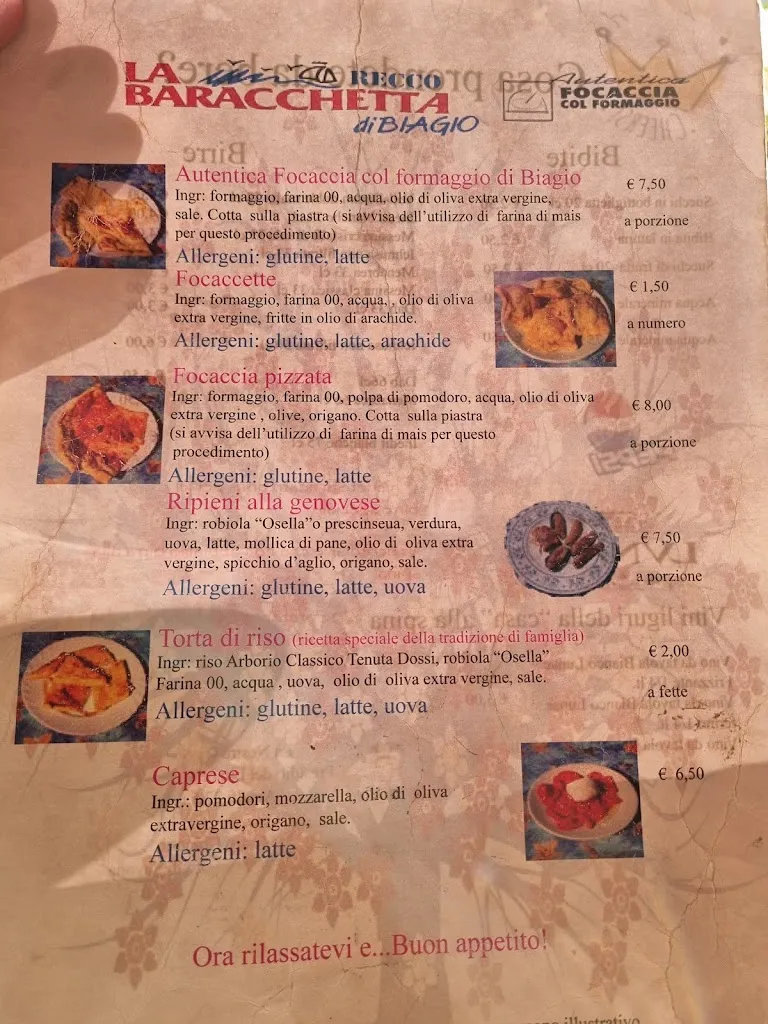 LA BARACCHETTA
RECCO
di BIAGIO
Autentica
FOCACCIA
COL FORMAGGIO
Autentica Focaccia col formaggio di Biagio
€ 7,50
Ingr: formaggio, farina 00, acqua, olio di oliva extra vergine,
sale. Cotta sulla piastra ( si avvisa dell'utilizzo di farina di mais
a porzione
per questo procedimento)
Allergeni: glutine, latte
Focaccette
€ 1,50
Ingr: formaggio, farina 00, acqua, , olio di oliva
extra vergine, fritte in olio di arachide.
a numero
Allergeni: glutine, latte, arachide
Focaccia pizzata
Ingr: formaggio, farina 00, polpa di pomodoro, acqua, olio di oliva
€ 8,00
extra vergine , olive, origano. Cotta sulla piastra
(si avvisa dell'utilizzo di farina di mais per questo
a porzione
procedimento)
Allergeni: glutine, latte
Ripieni alla genovese
Ingr: robiola “Osella”o prescinseua, verdura,
€ 7,50
uova, latte, mollica di pane, olio di oliva extra
vergine, spicchio d'aglio, origano, sale.
a porzione
Allergeni: glutine, latte, uova
Torta di riso (ricetta speciale della tradizione di famiglia)
€ 2,00
Ingr: riso Arborio Classico Tenuta Dossi, robiola “Osella”
Farina 00, acqua , uova, olio di oliva extra vergine, sale.
a fette
Allergeni: glutine, latte, uova
Caprese
€ 6,50
Ingr.: pomodori, mozzarella, olio di oliva
extravergine, origano, sale.
Allergeni: latte
Ora rilassatevi e...Buon appetito!
illustrativo